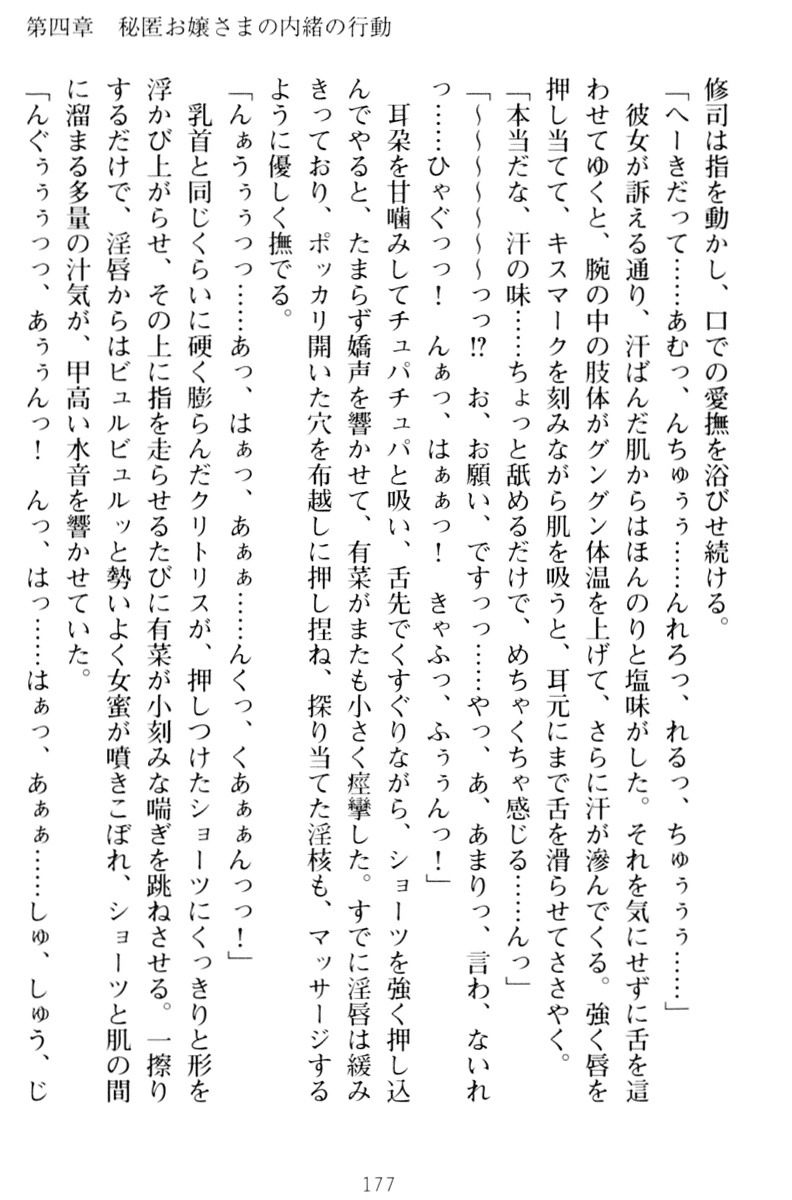 第四章　秘匿お嬢さまの内緒の行動
修司は指を動かし、口での愛撫を浴びせ続ける。
「へーきだって……あむっ、んちゅぅぅ……んれろっ、れるっ、ちゅぅぅぅ……」
　彼女が訴える通り、汗ばんだ肌からはほんのりと塩味がした。それを気にせずに舌を這
わせてゆくと、腕の中の肢体がグングン体温を上げて、さらに汗が滲んでくる。強く唇を
押し当てて、キスマークを刻みながら肌を吸うと、耳元にまで舌を滑らせてささやく。
「本当だな、汗の味……ちょっと舐めるだけで、めちゃくちゃ感じる……んっ」
「～～～～～～っっ!?　お、お願い、ですっっ……やっ、あ、あまりっ、言わ、ないれ
っ……ひゃぐっっ！　んぁっ、はぁぁっ！　きゃふっ、ふぅぅんっ！」
　耳朶を甘噛みしてチュパチュパと吸い、舌先でくすぐりながら、ショーツを強く押し込
んでやると、たまらず嬌声を響かせて、有菜がまたも小さく痙攣した。すでに淫唇は緩み
きっており、ポッカリ開いた穴を布越しに押し捏ね、探り当てた淫核も、マッサージする
ように優しく撫でる。
「んぁうぅぅっっ……あっ、はぁっ、あぁぁ……んくっ、くあぁぁんっっ！」
　乳首と同じくらいに硬く膨らんだクリトリスが、押しつけたショーツにくっきりと形を
浮かび上がらせ、その上に指を走らせるたびに有菜が小刻みな喘ぎを跳ねさせる。一擦り
するだけで、淫唇からはビュルビュルッと勢いよく女蜜が噴きこぼれ、ショーツと肌の間
に溜まる多量の汁気が、甲高い水音を響かせていた。
「んぐぅぅぅっっ、あぅぅんっ！　んっ、はっ……はぁっ、あぁぁ……しゅ、しゅう、じ
177